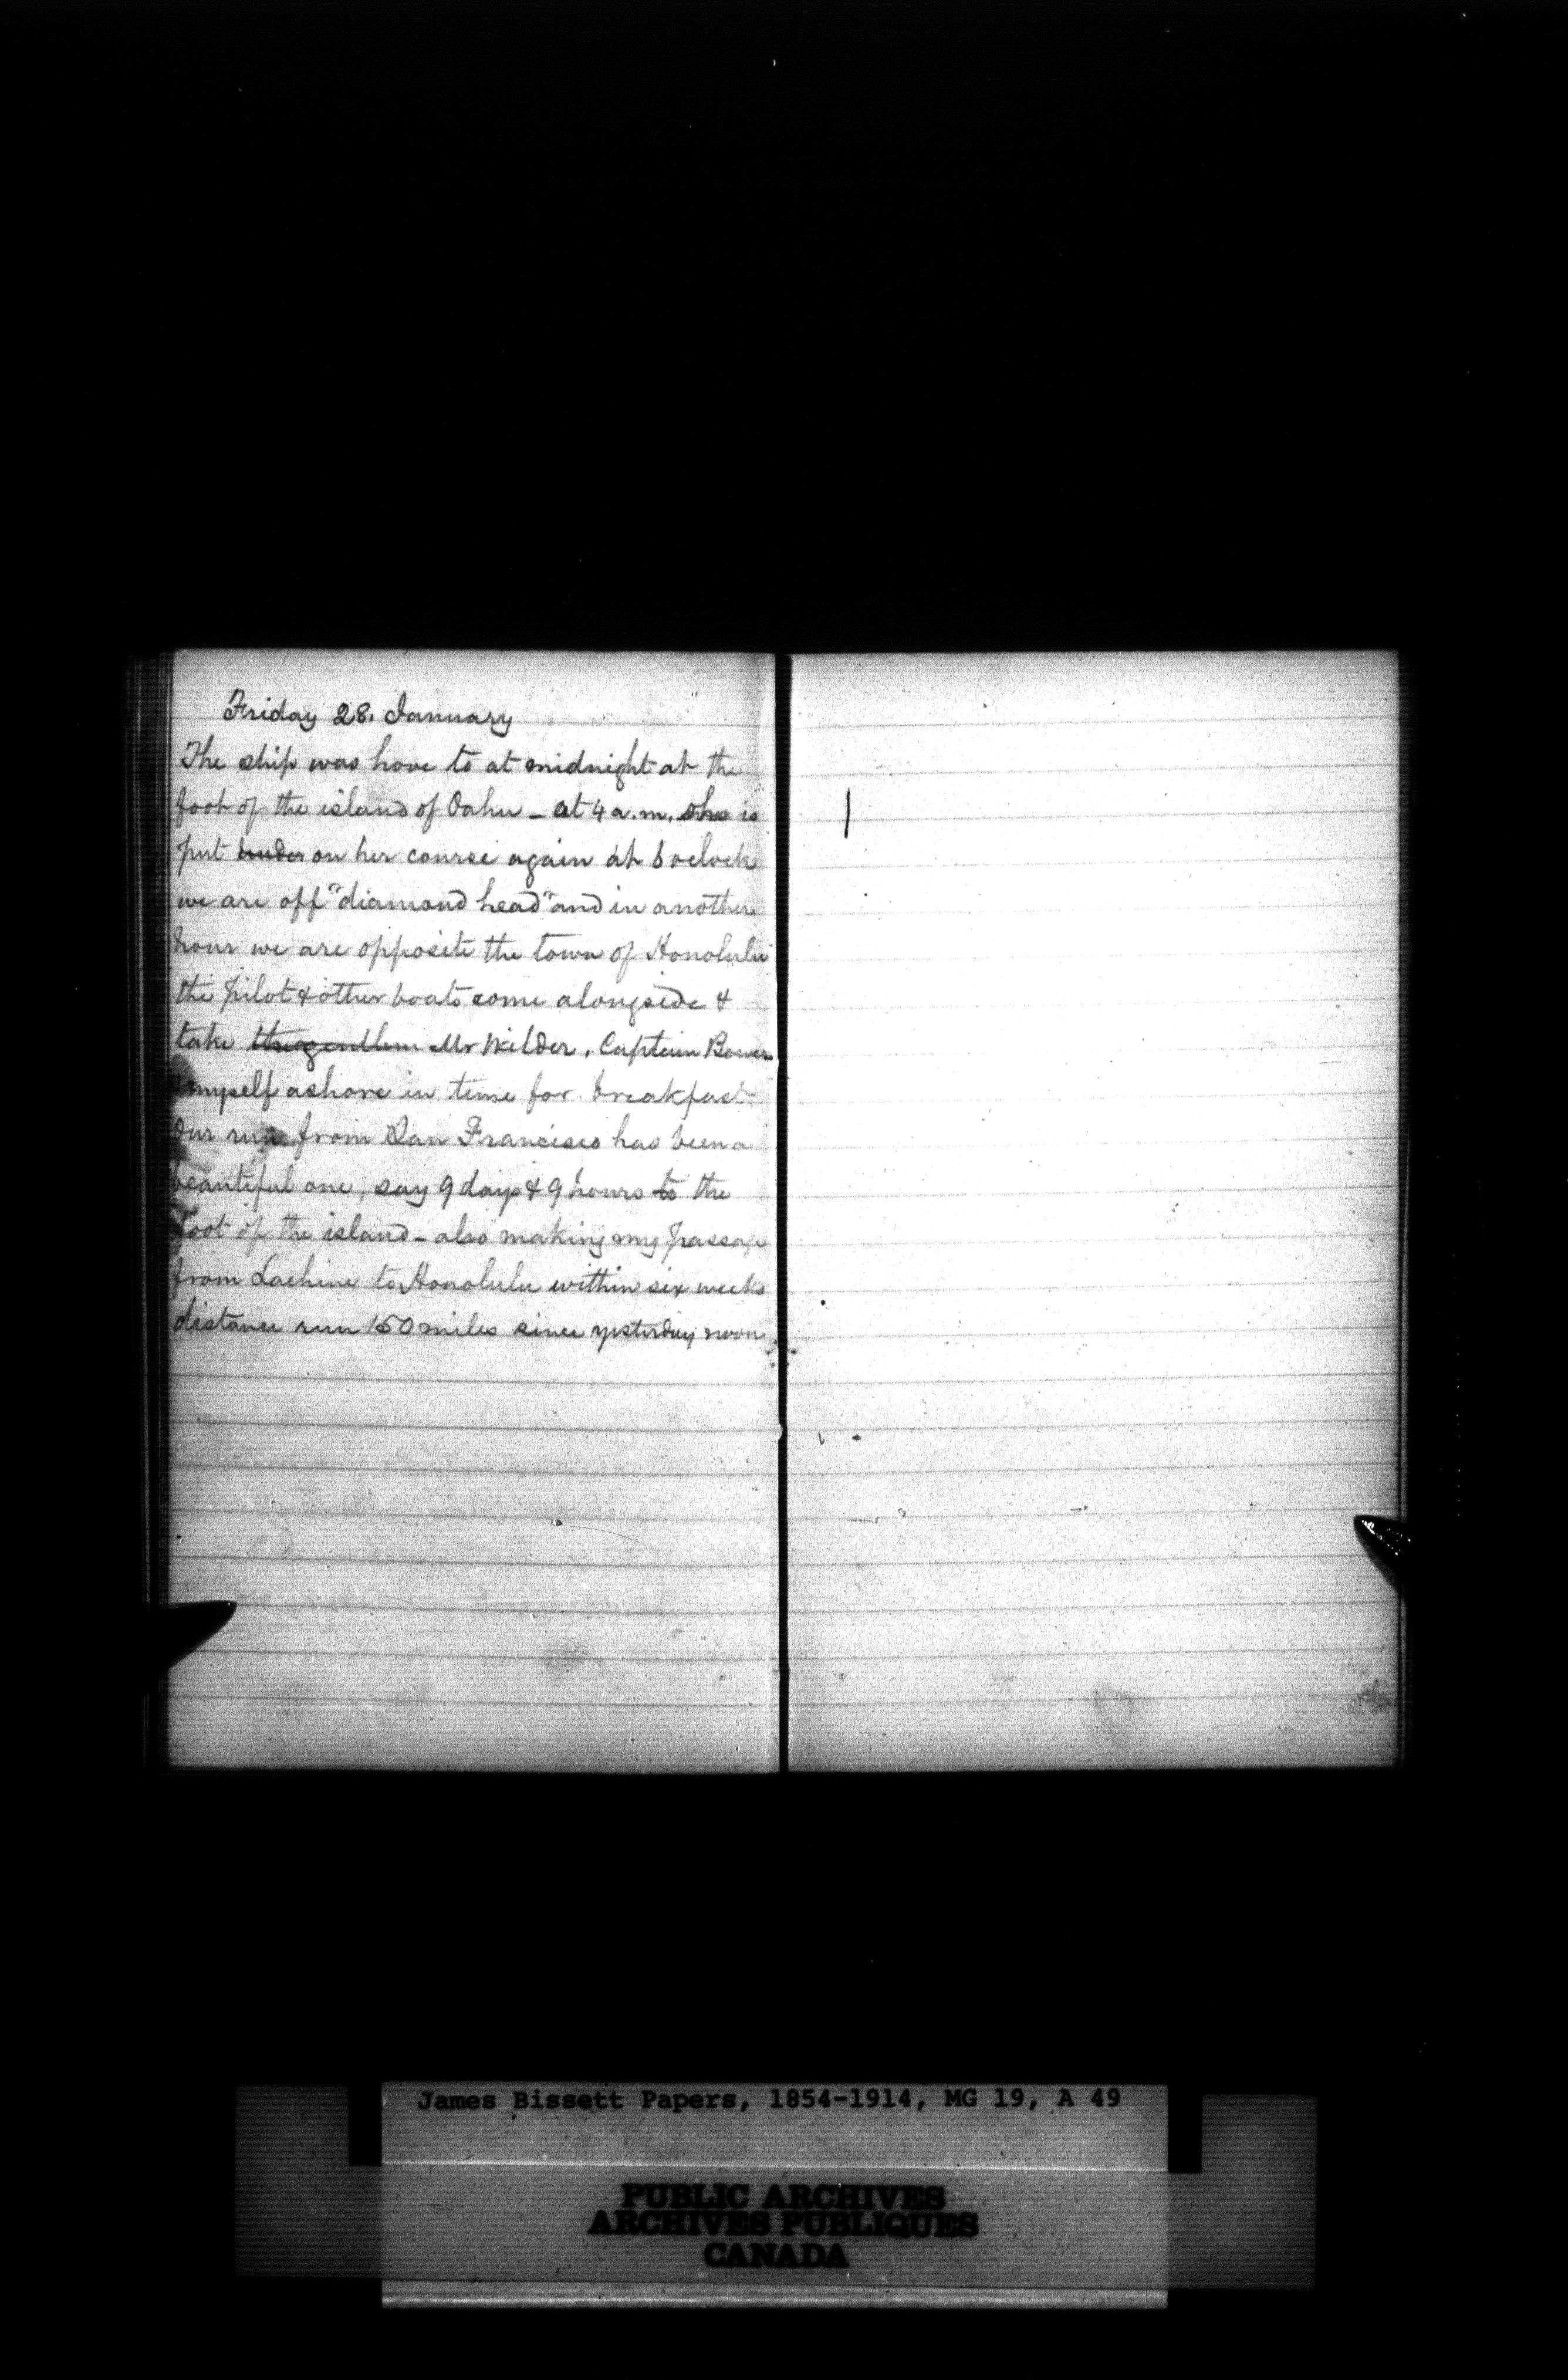 Friday 28. January
The ship was hove to at midnight at the
foot of the island of Oahu - at 4 a.m. she is
put under on her course again at 6 oclock
we are off "diamond head" and in another
hour we are opposite the town of Honolulu
the pilot & other boats come alongside &
take Mr Wilder, Captain Bower
& myself ashore in time for breakfast
Our run from San Francisco has been a
beautiful one, say 9 days & 9 hours to the
foot of the island - also making my passage
from Lachine to Honolulu within six weeks
distance run 150 miles since yesterday noon
James Bissett Papers, 1854-1914, MG 19, A 49
PUBLIC ARCHIVES
ARCHIVES PUBLIQUES
CANADA